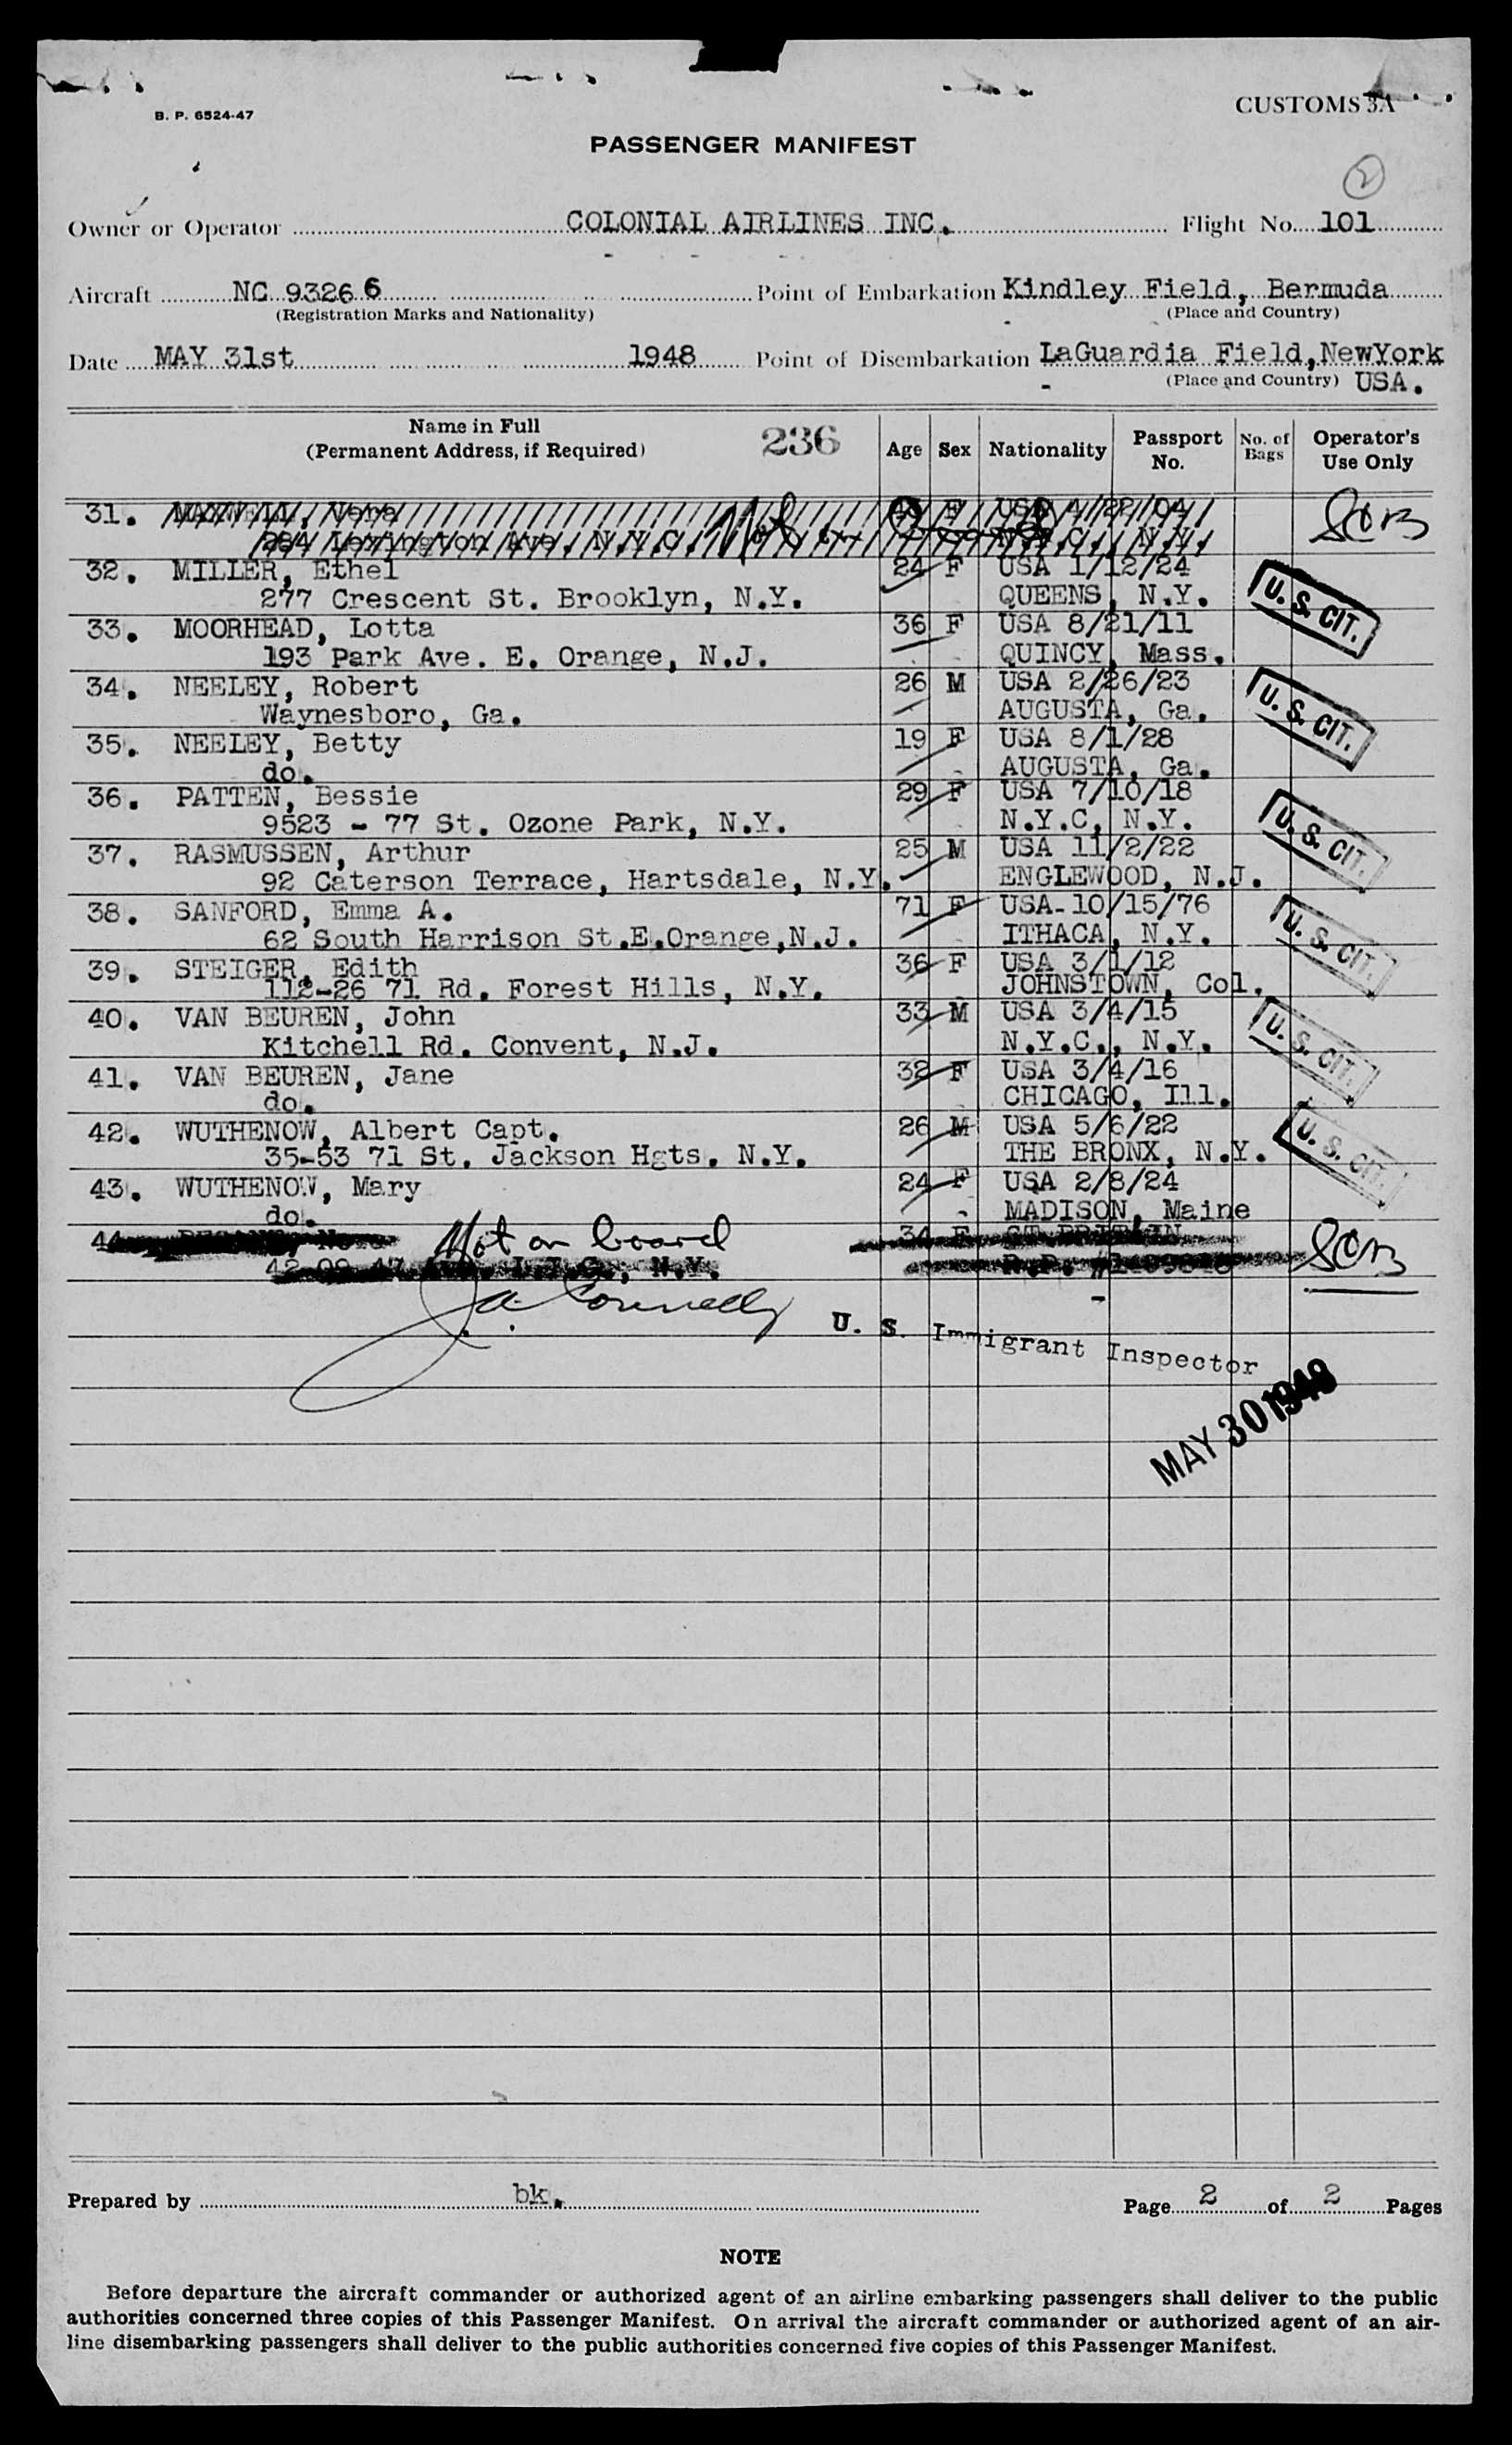 B. P. 6524-47
CUSTOMS 3A
PASSENGER MANIFEST
2
Owner or Operator COLONIAL AIRLINES INC. Flight No. 101
Aircraft NC 93266 Point of Embarkation Kindley Field, Bermuda
(Registration Marks and Nationality) (Place and Country)
Date MAY 31st 1948 Point of Disembarkation LaGuardia Field, NewYork
(Place and Country) USA.
Name in Full
(Permanent Address, if Required) 236 Age Sex Nationality Passport No. No. of Bags Operator's Use Only
31. USA 4/22/04
Lexington Ave. N.Y.C. Not N.Y.
32. MILLER, Ethel 24 F USA 1/12/24
277 Crescent St. Brooklyn, N.Y. QUEENS, N.Y. U. S. CIT.
33. MOORHEAD, Lotta 36 F USA 8/21/11
193 Park Ave. E. Orange, N.J. QUINCY, Mass.
34. NEELEY, Robert 26 M USA 2/26/23
Waynesboro, Ga. AUGUSTA, Ga. U. S. CIT.
35. NEELEY, Betty 19 F USA 8/1/28
do. AUGUSTA, Ga.
36. PATTEN, Bessie 29 F USA 7/10/18
9523 - 77 St. Ozone Park, N.Y. N.Y.C, N.Y. U. S. CIT.
37. RASMUSSEN, Arthur 25 M USA 11/2/22
92 Caterson Terrace, Hartsdale, N.Y. ENGLEWOOD, N.J.
38. SANFORD, Emma A. 71 F USA-10/15/76
62 South Harrison St.E.Orange,N.J. ITHACA, N.Y. U. S. CIT.
39. STEIGER, Edith 36 F USA 3/1/12
112-26 71 Rd. Forest Hills, N.Y. JOHNSTOWN, Col.
40. VAN BEUREN, John 33 M USA 3/4/15
Kitchell Rd. Convent, N.J. N.Y.C., N.Y. U. S. CIT.
41. VAN BEUREN, Jane 32 F USA 3/4/16
do. CHICAGO, Ill.
42. WUTHENOW, Albert Capt. 26 M USA 5/6/22
35-53 71 St. Jackson Hgts. N.Y. THE BRONX, N.Y. U. S. CIT.
43. WUTHENOW, Mary 24 F USA 2/8/24
do. MADISON, Maine
44. Not on board 34 F GT BRITAIN
L.I.C., N.Y.
J A Connelly U. S. Immigrant Inspector
MAY 30 1948
Prepared by bk. Page 2 of 2 Pages
NOTE
Before departure the aircraft commander or authorized agent of an airline embarking passengers shall deliver to the public
authorities concerned three copies of this Passenger Manifest. On arrival the aircraft commander or authorized agent of an air-
line disembarking passengers shall deliver to the public authorities concerned five copies of this Passenger Manifest.